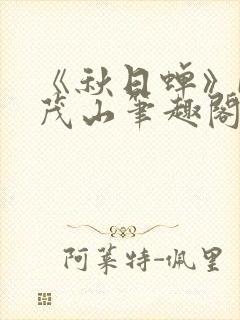 《秋日蝉》
茂山笔趣阁
阿莱特-佩里